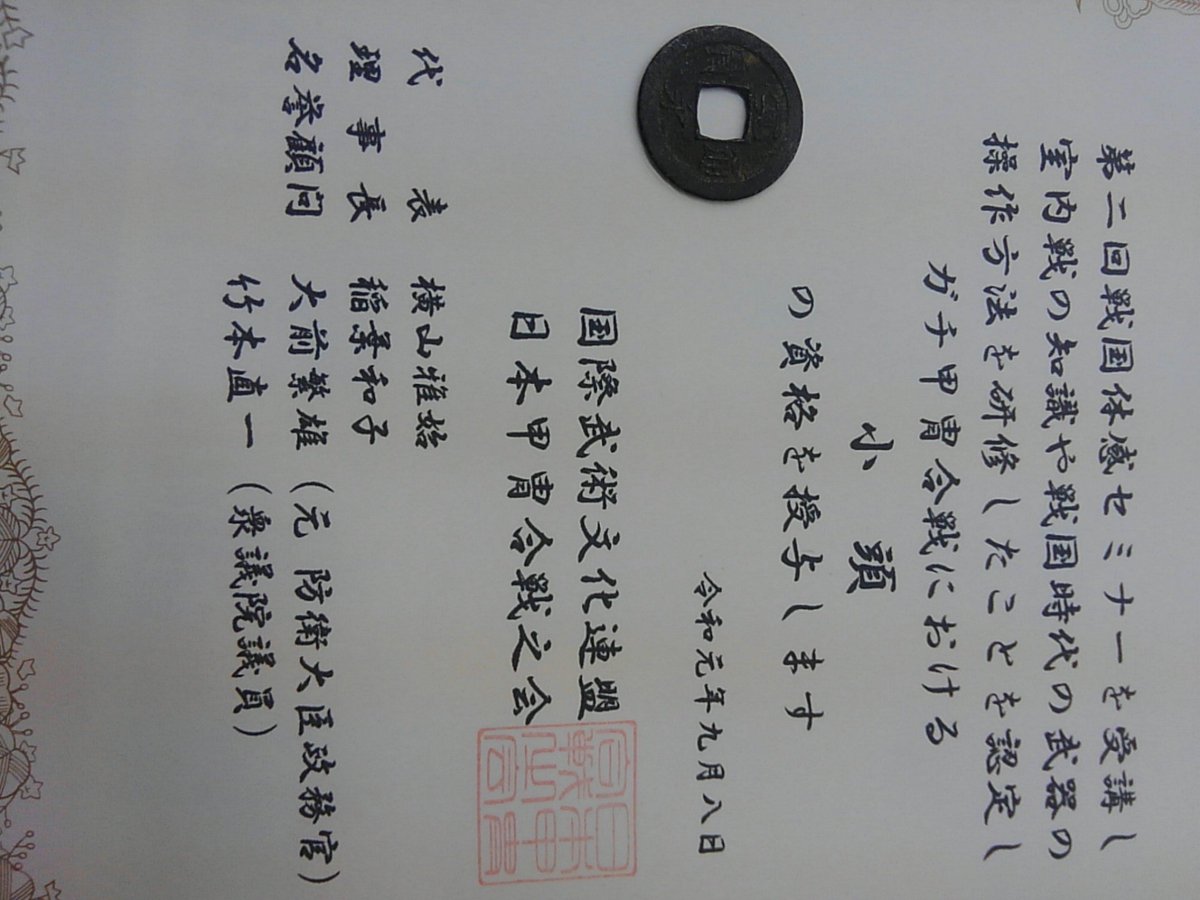 第二回戦国体感セミナーを受講し
室内戦の知識や戦国時代の武器の
操作方法を研修したことを認定し
ガチ甲冑合戦における
小頭
の資格を授与します
令和元年九月八日
国際武術文化連盟
日本甲冑合戦之会
代表 横山雅始
理事長 稲葉和子
名誉顧問 大前繁雄（元 防衛大臣政務官）
竹本直一（衆議院議員）